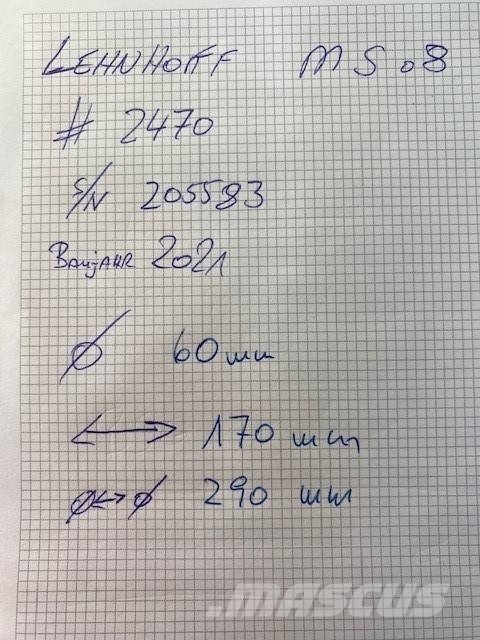 LEHNHOFF MS 08
# 2470
S/N 205583
BAUJAHR 2021
Ø 60 mm
↔ 170 mm
Ø↔Ø 290 mm
.MASCUS